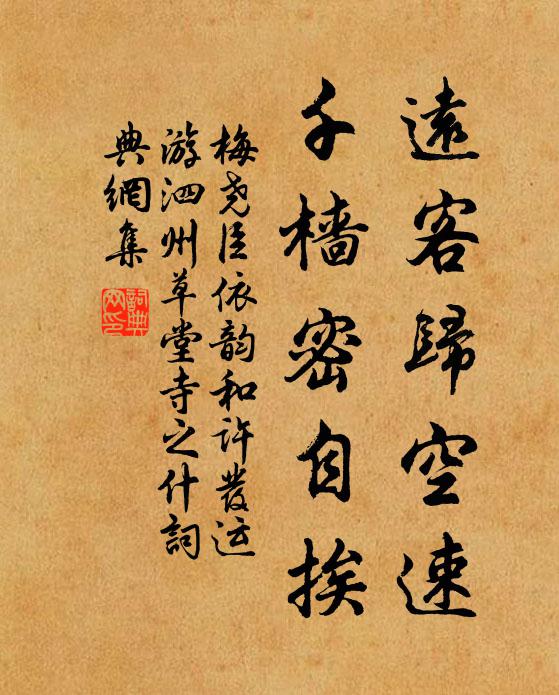 遠客歸空速
千檣密自挨
梅堯臣依韵和许發运
游泗州草堂寺之什詞
典網集
詞典网印